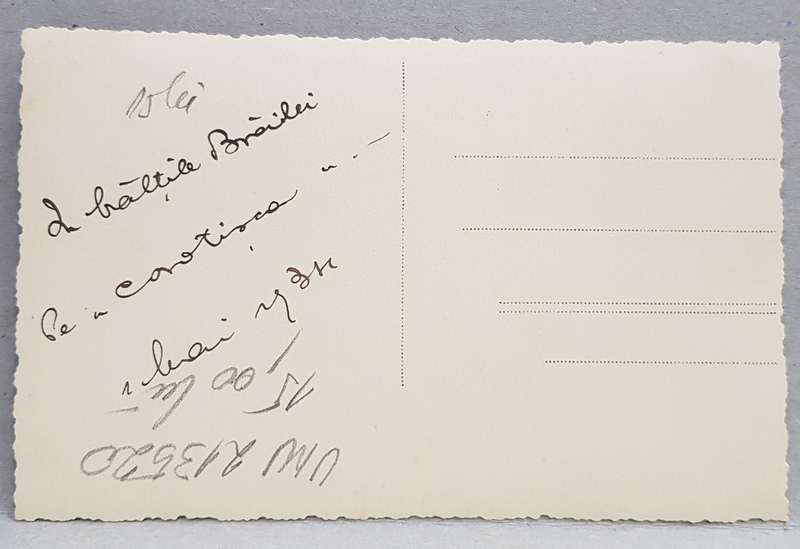 15 lei
In bălțile Brăilei
Pe "Corotișca"
1 Mai 1931
15,00 lei
VNV 213520